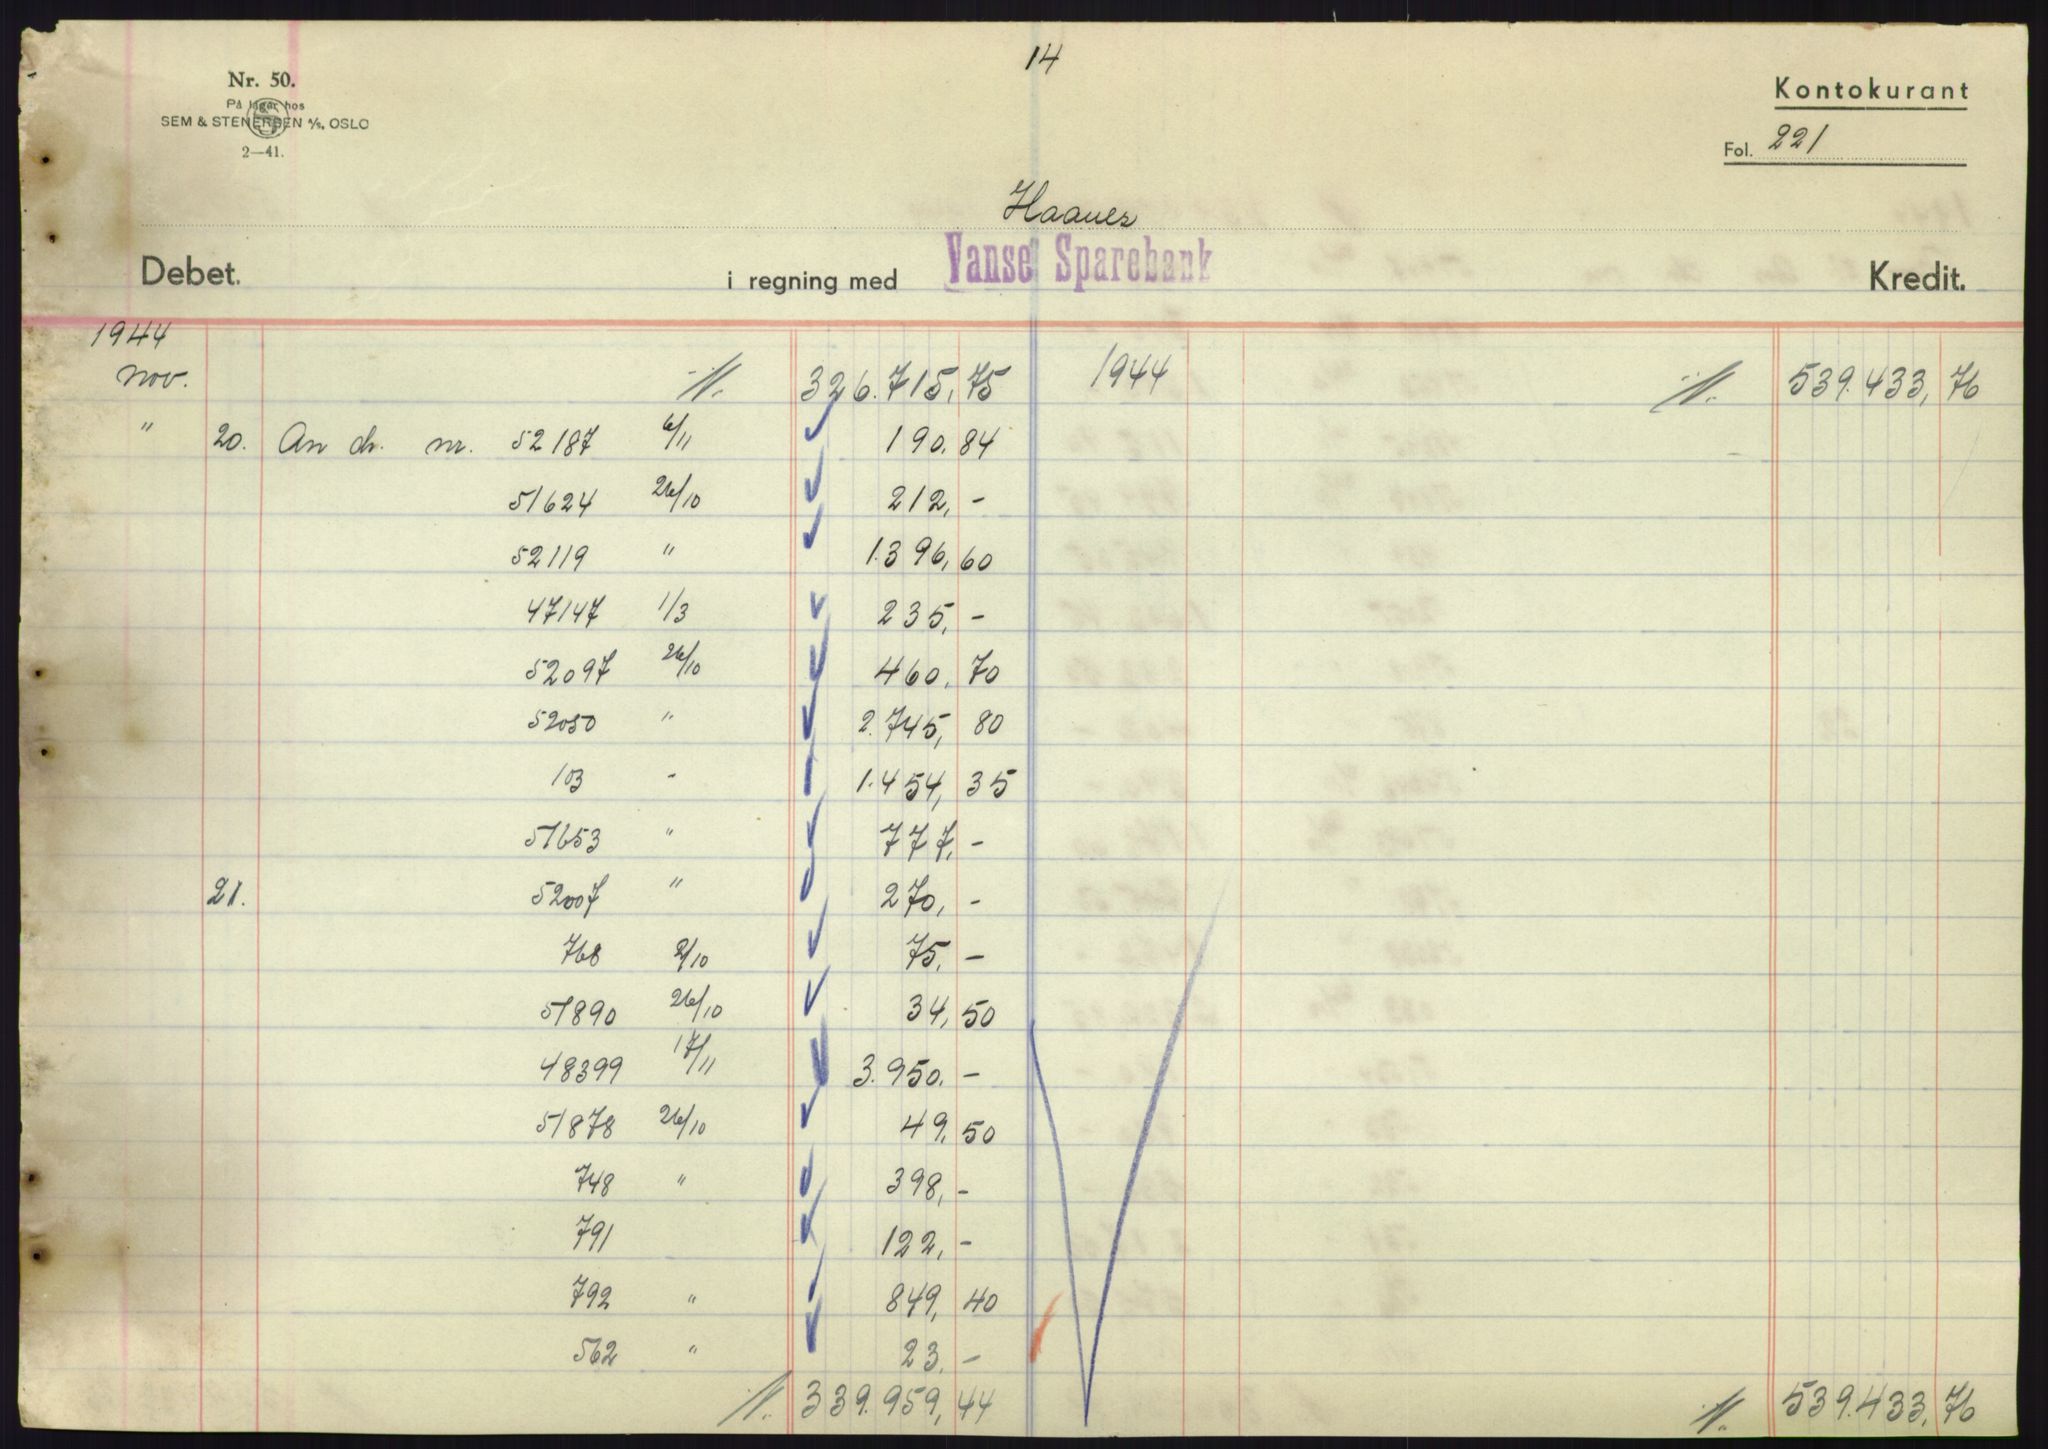 14
Nr. 50.
På lager hos
SEM & STENERSEN A/S, OSLO
2—41.
Kontokurant
Fol. 221
Haanes
Debet. i regning med Vanse Sparebank Kredit.
1944
nov. 326.715,75 1944 539.433,76
" 20. An ch. nr. 52187 6/11 190.84
51624 26/10 212,-
52119 " 1.396,60
47147 1/3 235,-
52097 26/10 460,70
52050 " 2.745,80
103 - 1.454,35
51653 " 777,-
21. 52007 " 270,-
768 2/10 75,-
51890 26/10 34,50
48399 17/11 3.950.-
51878 26/10 49,50
748 " 398,-
791 122,-
792 " 849,40
562 " 23,-
339.959,44 539.433,76